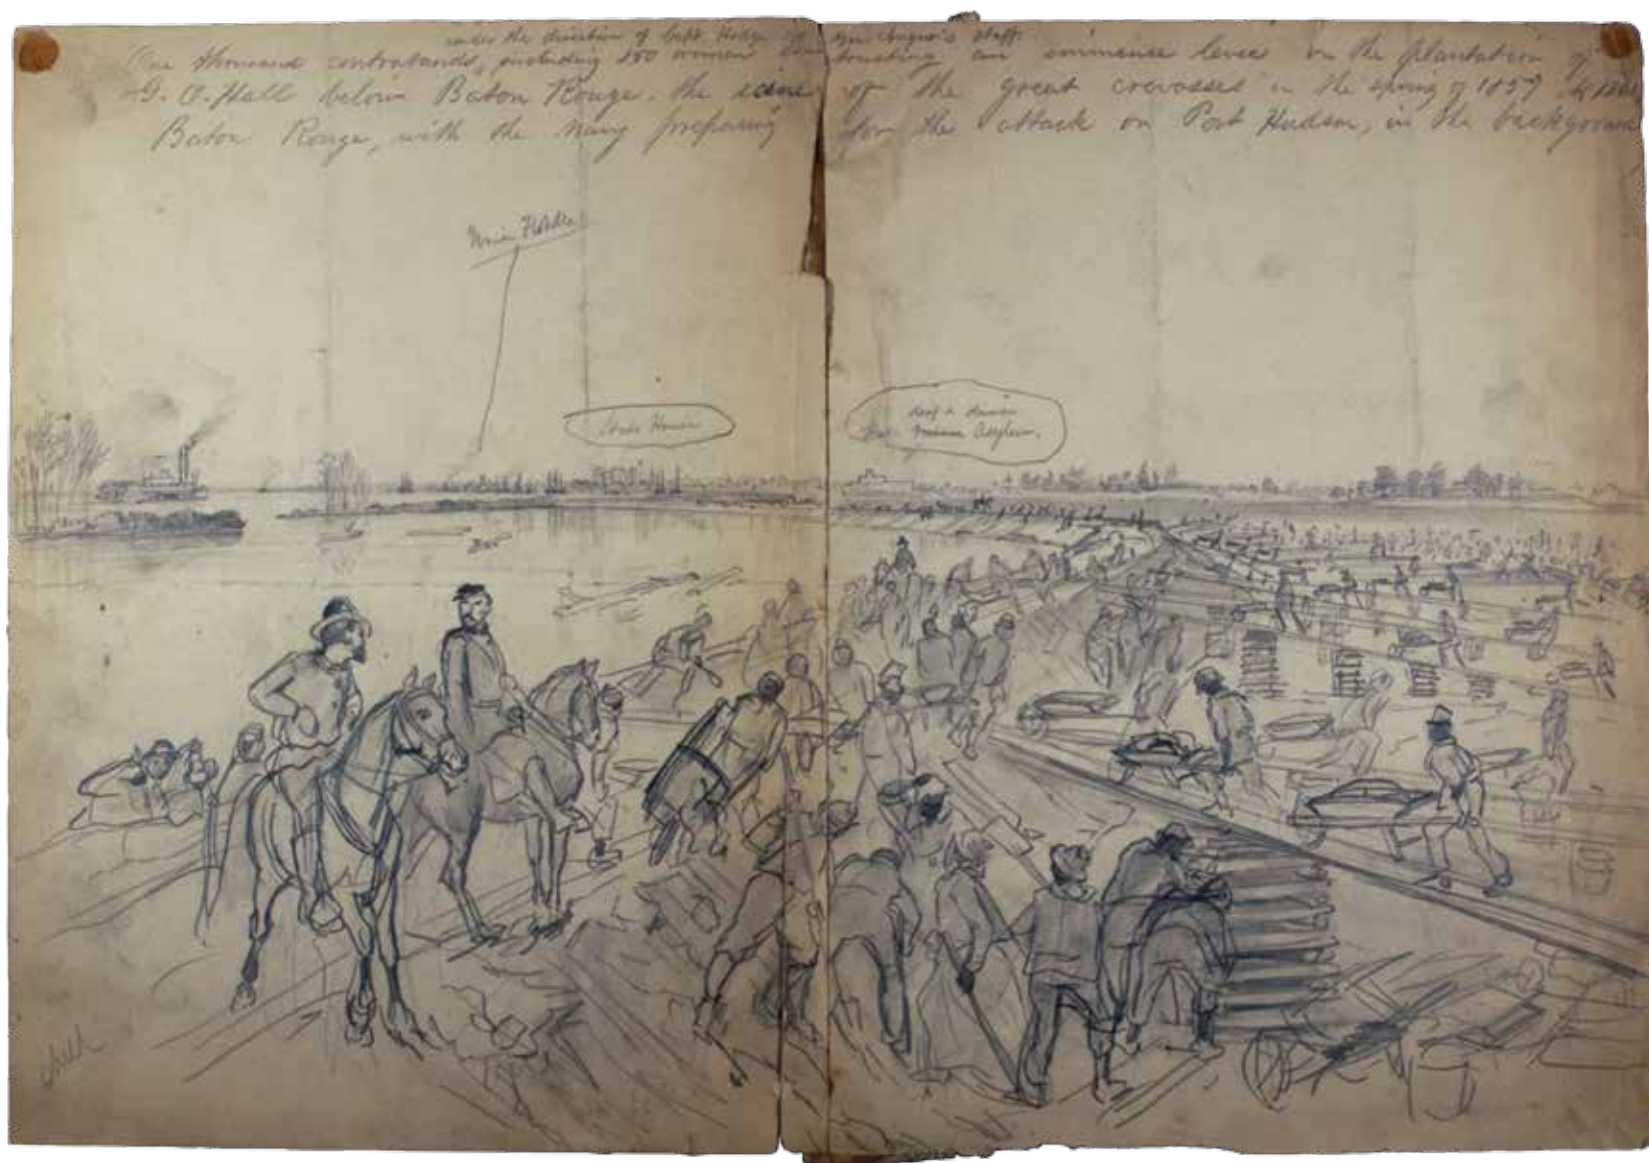 under the direction of Capt. Hodge of Gen Augur's staff.
One thousand contrabands, including 150 women constructing an immense levee on the plantation of
G. O. Hall below Baton Rouge. the scene of the great crevasses in the spring of 1859
Baton Rouge, with the Navy preparing for the attack on Port Hudson, in the background
State House
deaf & dum
Asylum.